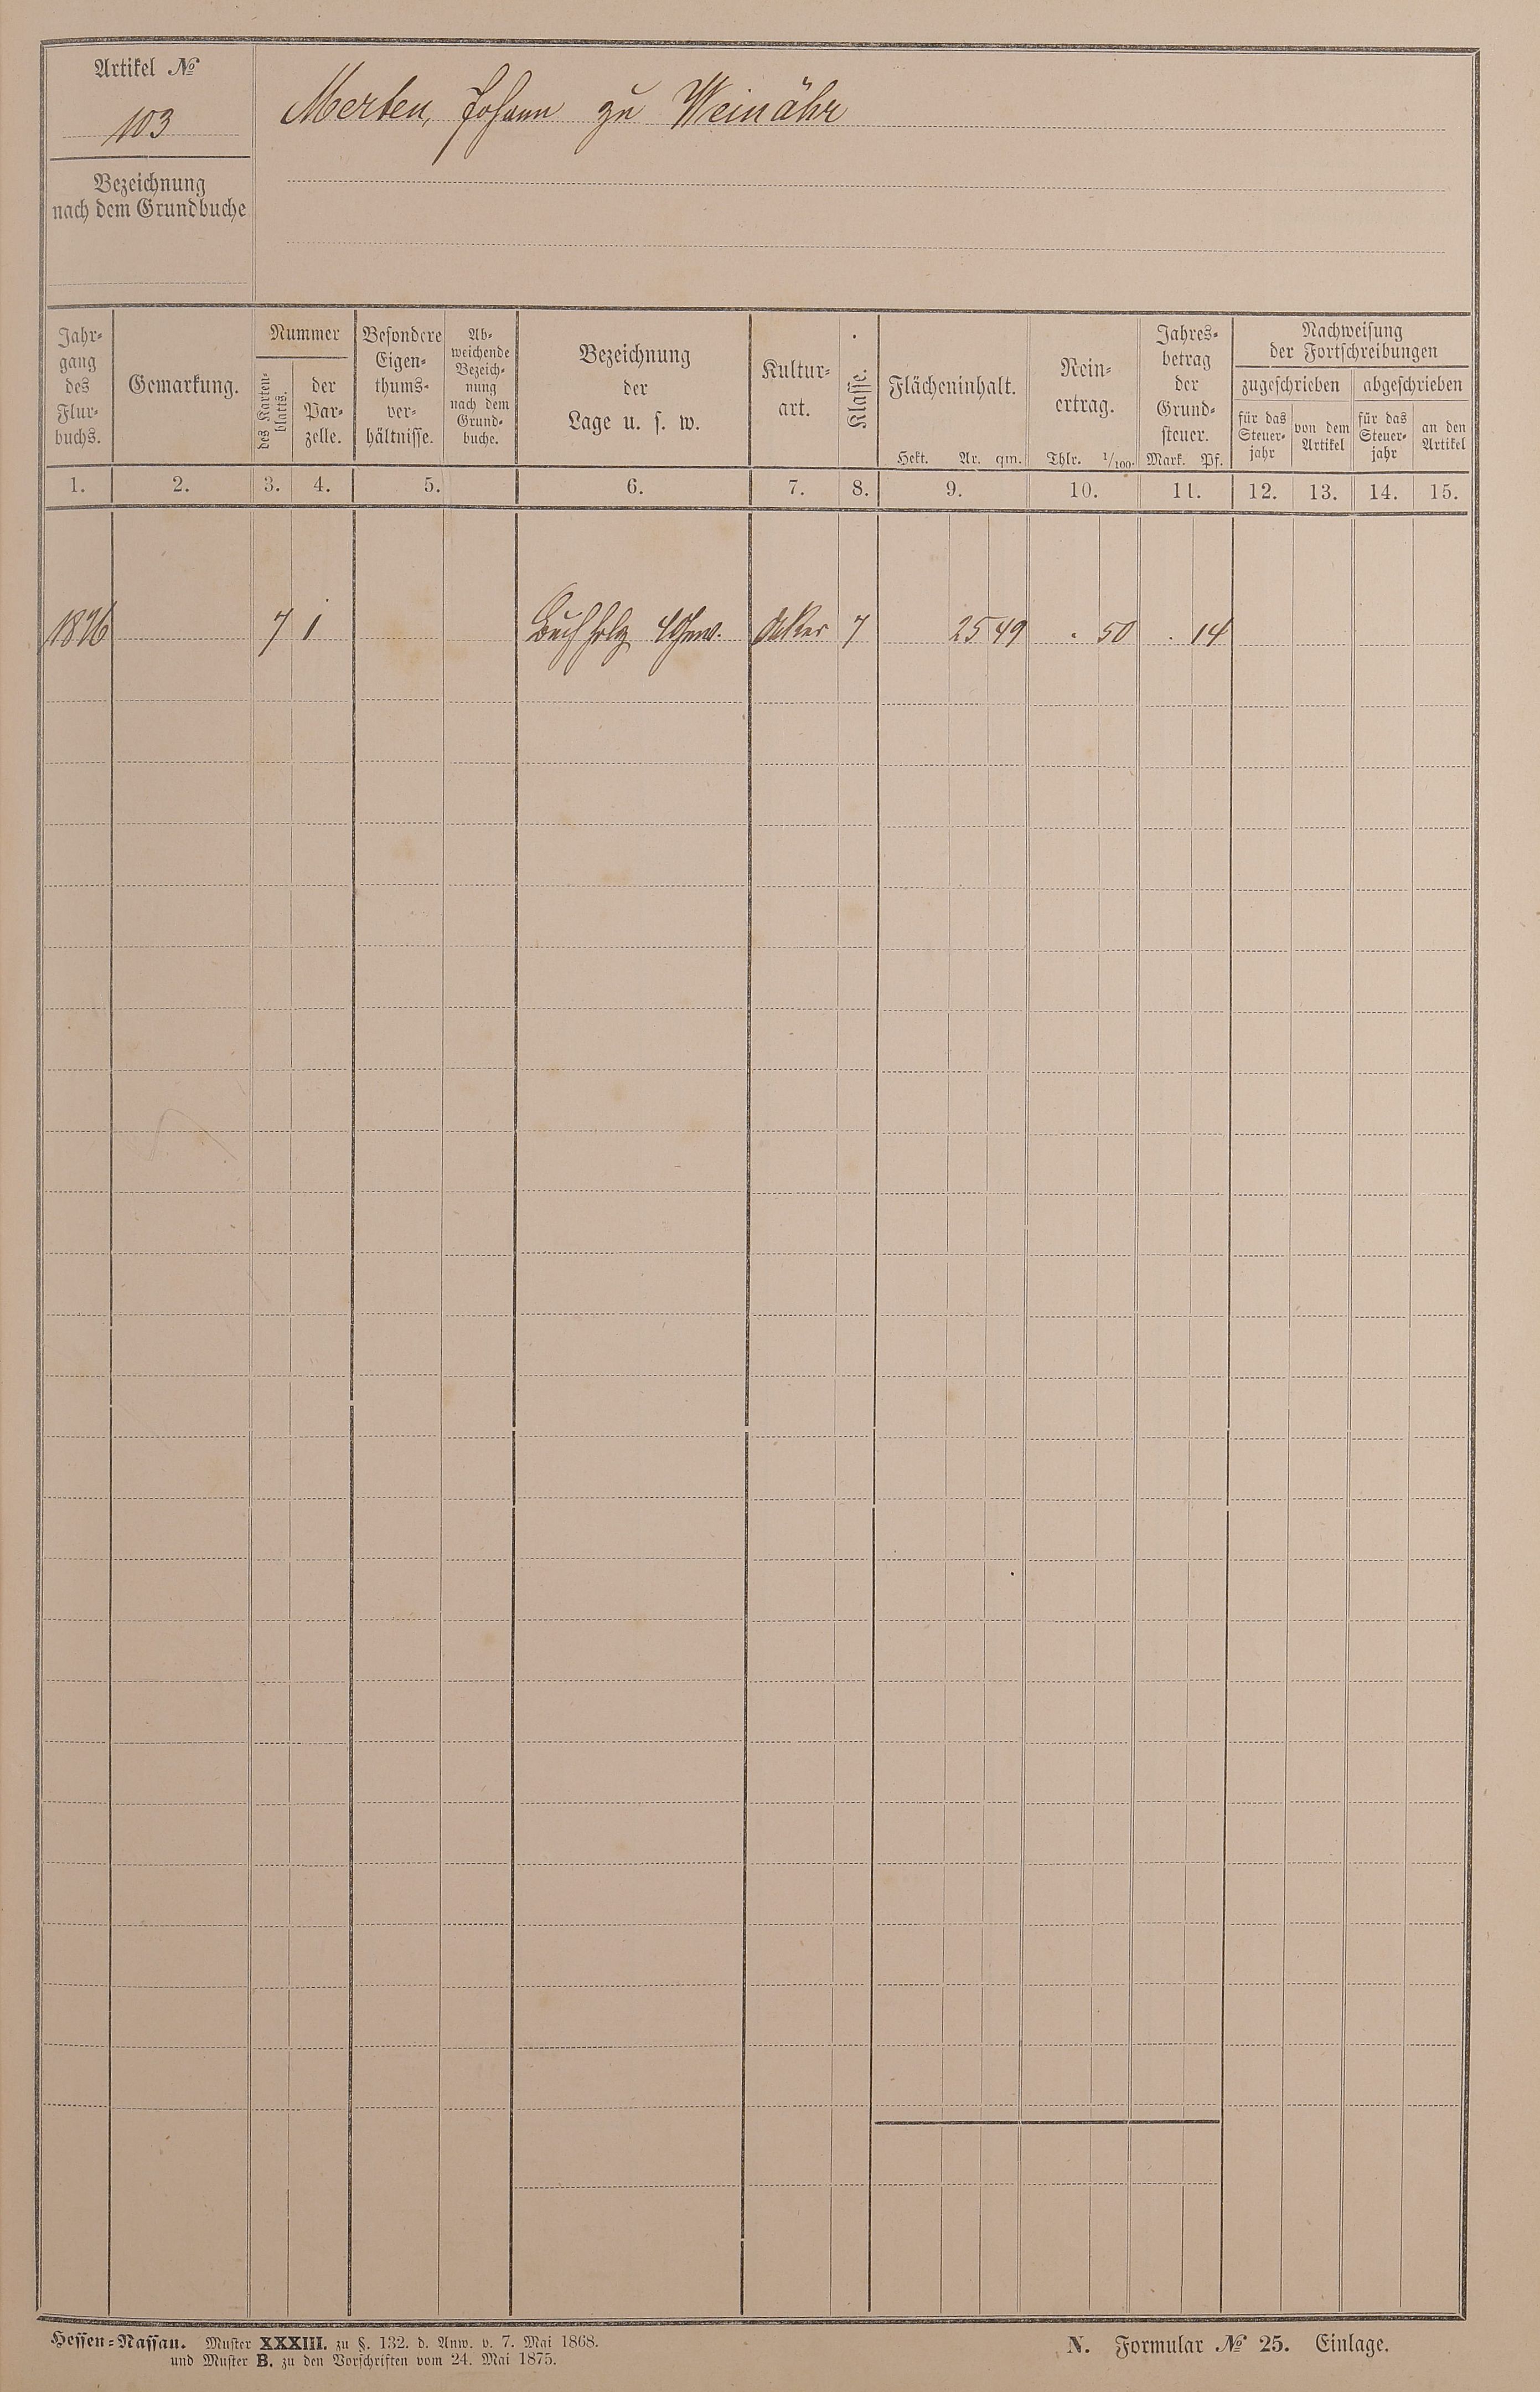 Artikel №
103
Merten, Johann zu Weinähr
Bezeichnung
nach dem Grundbuche
Jahr-
gang
des
Flur-
buchs.
Gemarkung.
Nummer
des Karten-
blatts.
der
Par-
zelle.
Besondere
Eigen-
thums-
ver-
hältnisse.
Ab-
weichende
Bezeich-
nung
nach dem
Grund-
buche.
Bezeichnung
der
Lage u. s. w.
Kultur-
art.
Klasse.
Flächeninhalt.
Hekt. Ar. qm.
Rein-
ertrag.
Thlr. 1/100.
Jahres-
betrag
der
Grund-
steuer.
Mark. Pf.
Nachweisung
der Fortschreibungen
zugeschrieben abgeschrieben
für das
Steuer-
jahr
von dem
Artikel
für das
Steuer-
jahr
an den
Artikel
1. 2. 3. 4. 5. 6. 7. 8. 9. 10. 11. 12. 13. 14. 15.
1876 7 1 Buchholz Acker 7 25 49 . 50 . 14
Hessen-Nassau. Muster XXXIII. zu §. 132. d. Anw. v. 7. Mai 1868.
und Muster B. zu den Vorschriften vom 24. Mai 1875.
N. Formular № 25. Einlage.